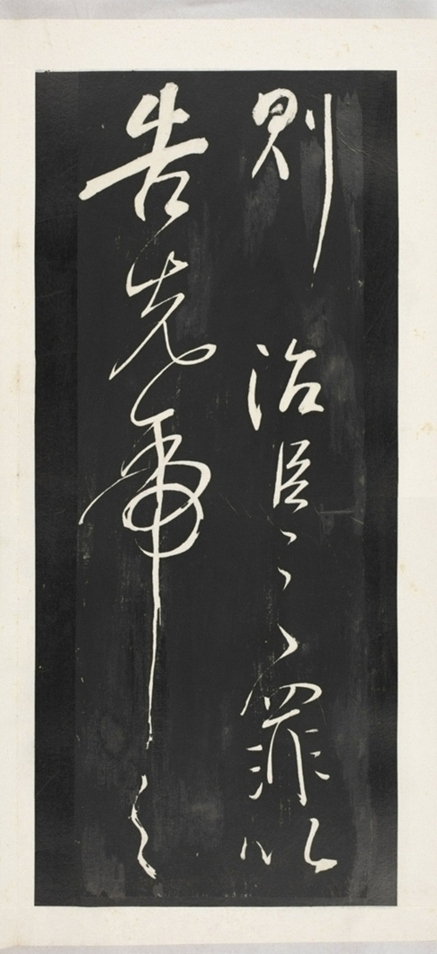 則治臣之罪以
告先帝之